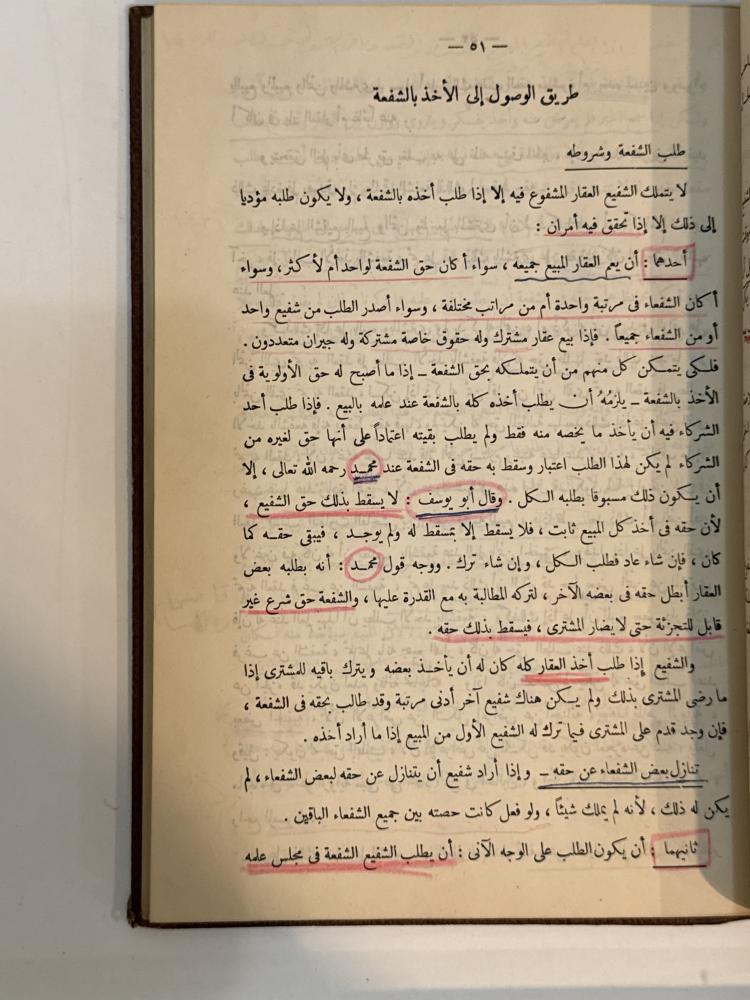 — ٥١ —
طريق الوصول إلى الأخذ بالشفعة
طلب الشفعة وشروطه
لا يتملك الشفيع العقار المشفوع فيه إلا إذا طلب أخذه بالشفعة ، ولا يكون طلبه مؤديا
إلى ذلك إلا إذا تحقق فيه أمران :
أحدهما : أن يعم العقار المبيع جميعه ، سواء أكان حق الشفعة لواحد أم لأكثر، وسواء
أكان الشفعاء فى مرتبة واحدة أم من مراتب مختلفة ، وسواء أصدر الطلب من شفيع واحد
أو من الشفعاء جميعاً . فإذا بيع عقار مشترك وله حقوق خاصة مشتركة وله جيران متعددون .
فلكى يتمكن كل منهم من أن يتملكه بحق الشفعة ــ إذا ما أصبح له حق الأولوية فى
الأخذ بالشفعة ــ يلزمُهُ أن يطلب أخذه كله بالشفعة عند علمه بالبيع . فإذا طلب أحد
الشركاء فيه أن يأخذ ما يخصه منه فقط ولم يطلب بقيته اعتماداً على أنها حق لغيره من
الشركاء لم يكن لهذا الطلب اعتبار وسقط به حقه فى الشفعة عند محمد رحمه الله تعالى ، إلا
أن يكون ذلك مسبوقا بطلبه الكل . وقال أبو يوسف : لا يسقط بذلك حق الشفيع ،
لأن حقه فى أخذ كل المبيع ثابت ، فلا يسقط إلا بمسقط له ولم يوجد ، فيبقى حقه كما
كان ، فإن شاء عاد فطلب الكل ، وإن شاء ترك . ووجه قول محمد : أنه بطلبه بعض
العقار أبطل حقه فى بعضه الآخر ، لتركه المطالبة به مع القدرة عليها ، والشفعة حق شرع غير
قابل للتجزئة حتى لا يضار المشترى ، فيسقط بذلك حقه .
والشفيع إذا طلب أخذ العقار كله كان له أن يأخذ بعضه ويترك باقيه للمشترى إذا
ما رضى المشترى بذلك ولم يكن هناك شفيع آخر أدنى مرتبة وقد طالب بحقه فى الشفعة ،
فإن وجد قدم على المشترى فيما ترك له الشفيع الأول من المبيع إذا ما أراد أخذه .
تنازل بعض الشفعاء عن حقه ــ وإذا أراد شفيع أن يتنازل عن حقه لبعض الشفعاء ، لم
يكن له ذلك ، لأنه لم يملك شيئاً ، ولو فعل كانت حصته بين جميع الشفعاء الباقين .
ثانيهما : أن يكون الطلب على الوجه الآتى : أن يطلب الشفيع الشفعة فى مجلس علمه